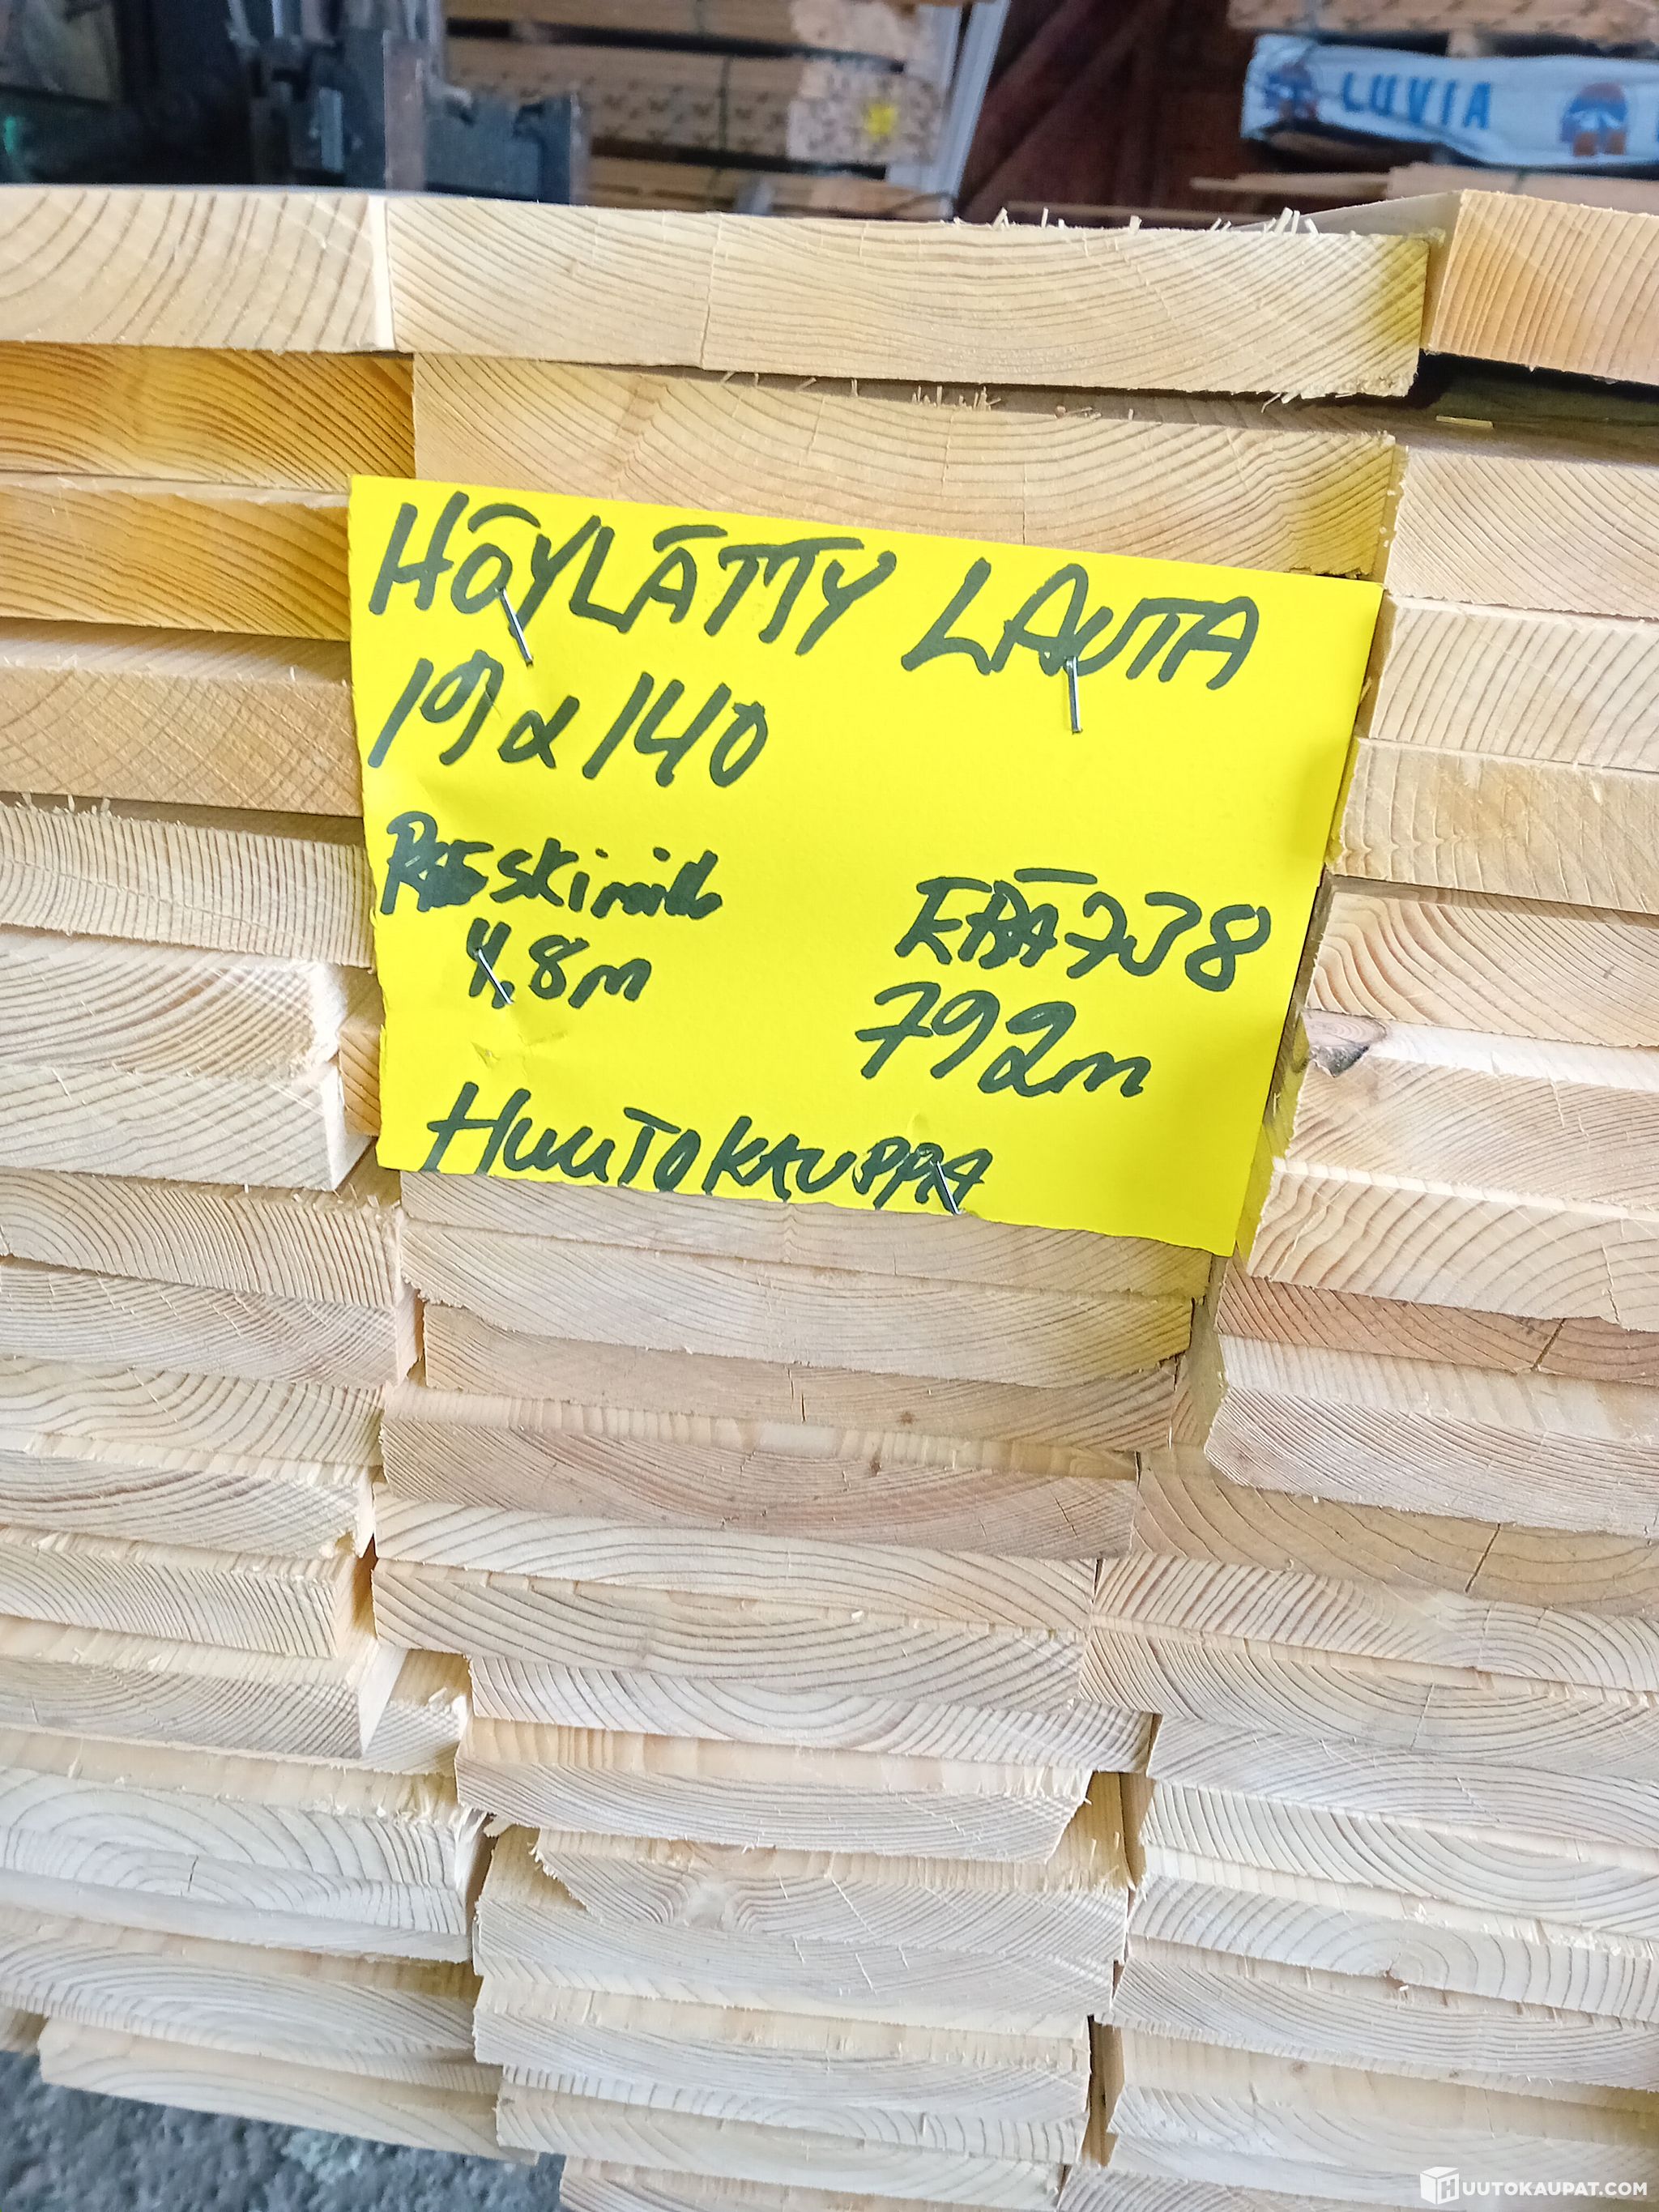 LUVIA
HÖYLÄTTY LAUTA
19x140
4,8m
ERÄ738
792m
HUUTOKAUPPA
HUUTOKAUPAT.COM